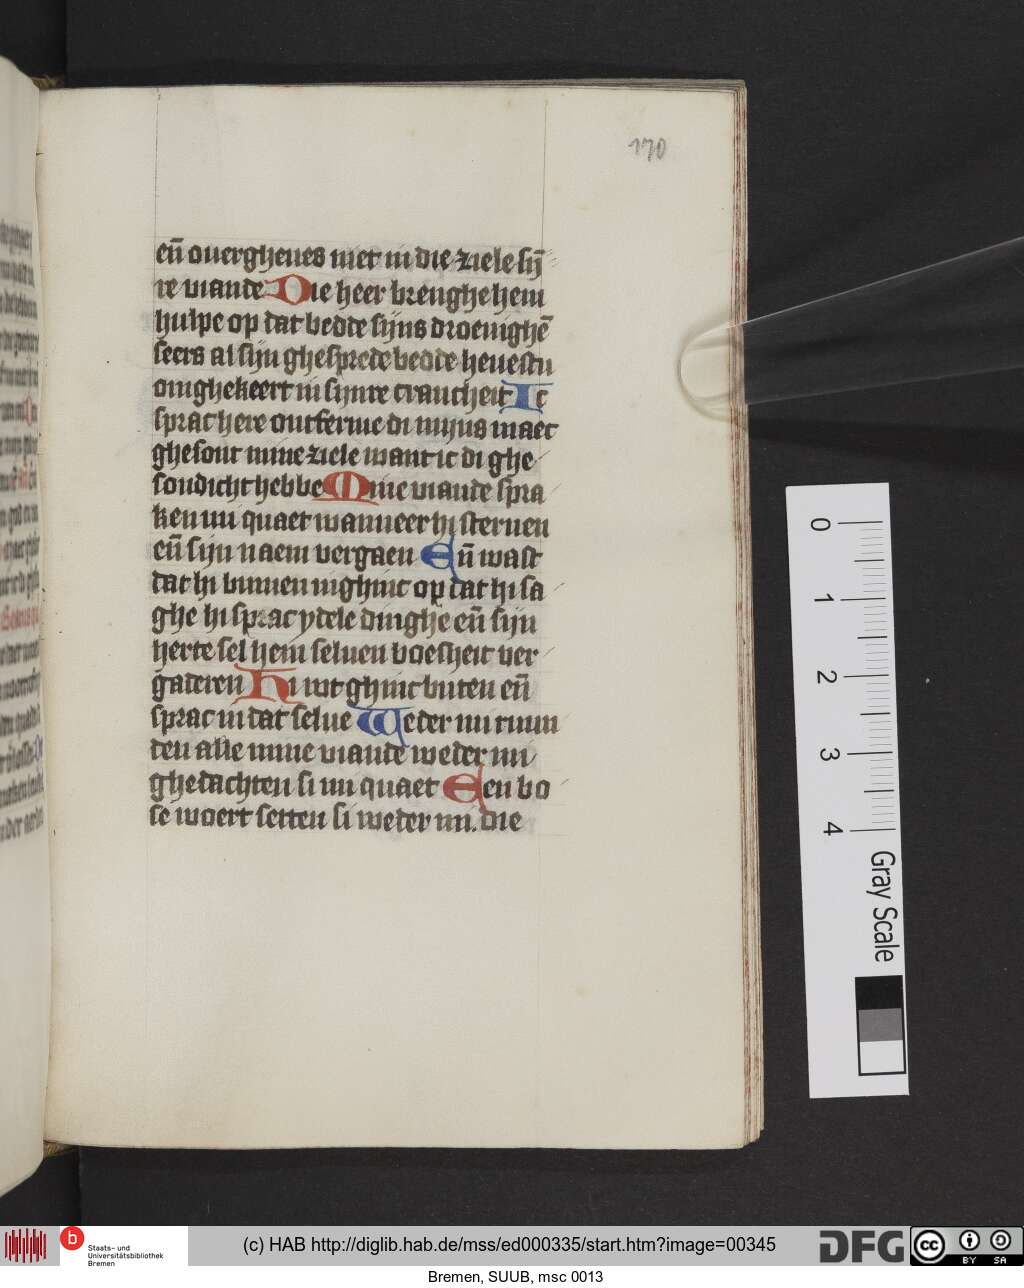 170
eñ ouergheues niet in die ziele sij̄
re viande Die heer brenghe hem
hulpe op dat bedde sijns droeuighē
seers al sijn ghesprede bedde heuestu
omghekeert in sijnre crancheit Ic
sprac here ontferme di mijns maec
ghesont mine ziele want ic di ghe
sondicht hebbe Mine viande spra
ken mi quaet wanneer hi steruen
eñ sijn naem vergaen Eñ wast
dat hi binnen inghinc op dat hi sa
ghe hi sprac ydele dinghe eñ sijn
herte sel hem seluen boesheit ver
gaderen Hi wt ghinc buten eñ
sprac in dat selue Weder mi ruun
den alle mine viande weder mi
ghedachten si mi quaet Een bo
se woert setten si weder mi. die
0
1
2
3
4
Gray Scale
b
Staats- und
Universitätsbibliothek
Bremen
(c) HAB http://diglib.hab.de/mss/ed000335/start.htm?image=00345
DFG
cc BY SA
Bremen, SUUB, msc 0013